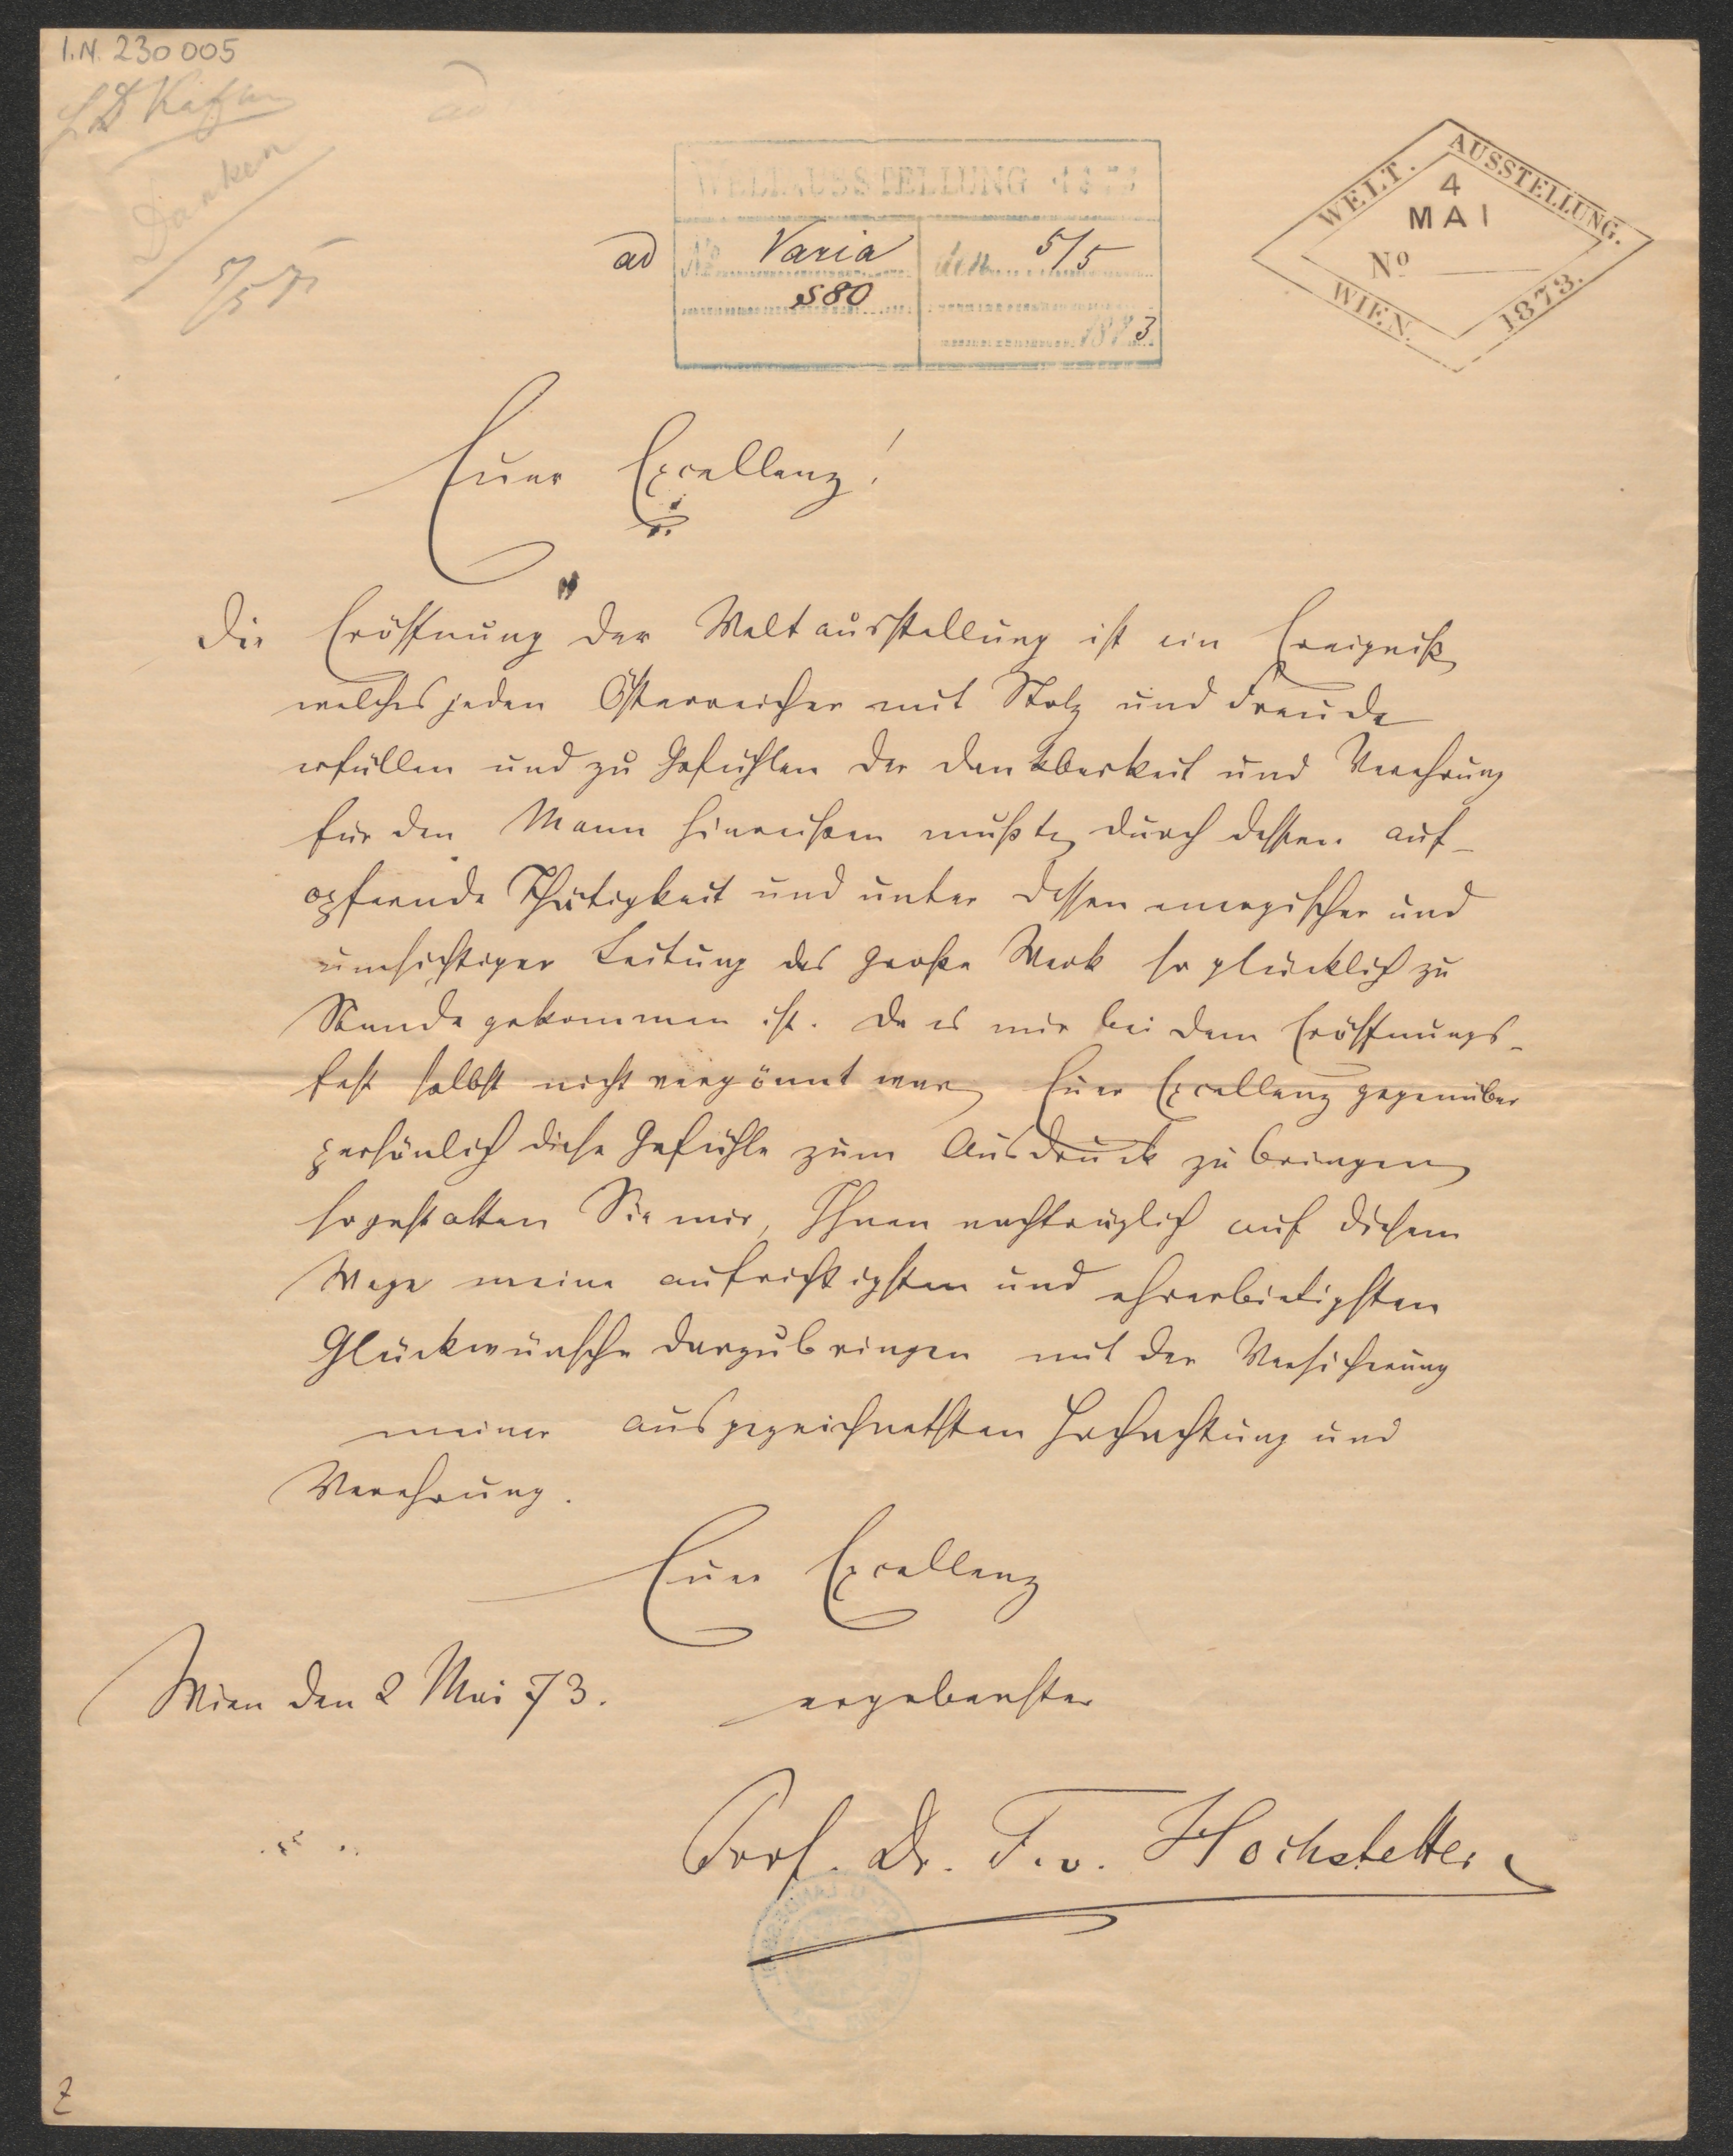 I.N. 230005
Danken
5/5 73
ad
WELTAUSSTELLUNG 1873
ad No Varia den 5/5
580
1873
WELT. AUSSTELLUNG.
4
MAI
No
WIEN. 1873.
Euer Excellenz!
Die Eröffnung der Weltausstellung ist ein Ereigniß,
welches jeden Österreicher mit Stolz und Freude
erfüllen und zu Gefühlen der Dankbarkeit und Verehrung
für den Mann hinreißen mußte, durch dessen auf-
opfernde Thätigkeit und unter dessen energischer und
umsichtiger Leitung das große Werk so glücklich zu
Stande gekommen ist. Da es mir bei dem Eröffnungs-
fest selbst nicht vergönnt war, Euer Excellenz gegenüber
persönlich diese Gefühle zum Ausdruck zu bringen,
so gestatten Sie mir, Ihnen nachträglich auf diesem
Wege meine aufrichtigsten und ehrerbietigsten
Glückwünsche darzubringen mit der Versicherung
meiner ausgezeichnetsten Hochachtung und
Verehrung.
Euer Excellenz
Wien den 2 Mai 73. ergebenster
Prof. Dr. F. v. Hochstetter